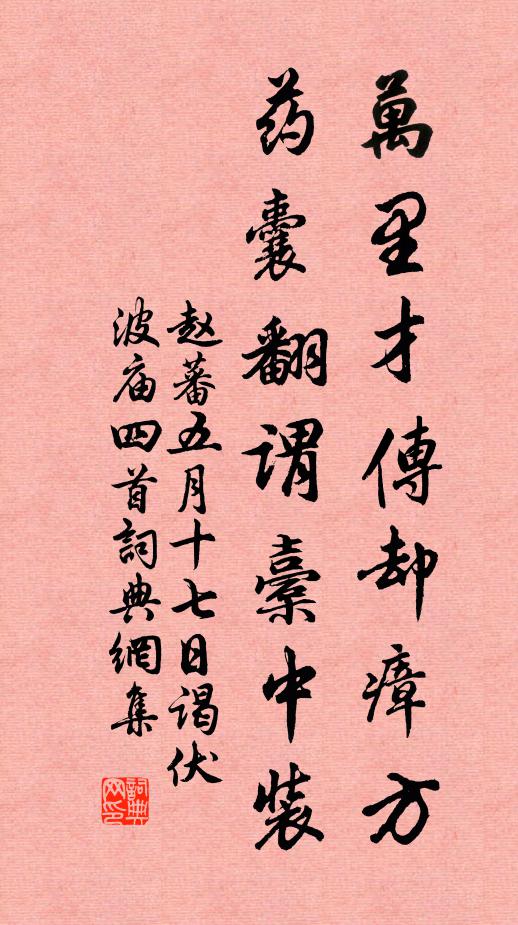 萬里才傳却瘴方
药囊翻谓橐中裝
赵蕃五月十七日谒伏
波庙四首詞典網集
詞典
网印